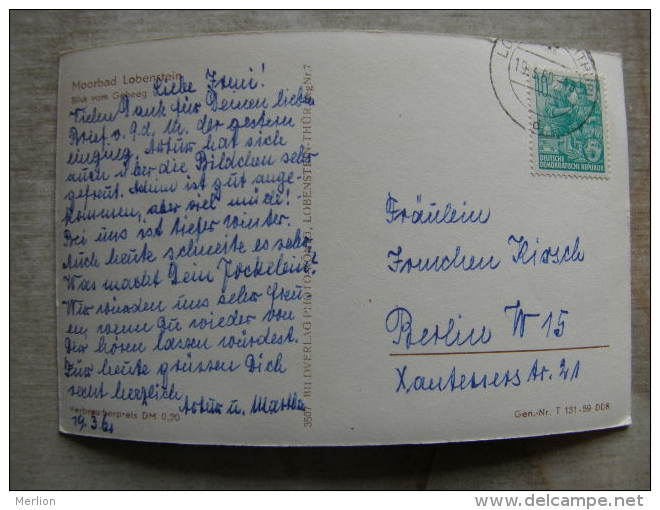 Moorbad Lobenstein
Blick vom Geheeg
Liebe Irmi!
Vielen Dank für Deinen lieben
Brief v. 9. d. M. der gestern
einging. Artur hat sich
auch über die Bildchen sehr
gefreut. ist gut ange-
kommen, aber viel müde!
Bei uns ist tiefer Winter.
Auch heute schneite es sehr.
Was macht Dein Jockelein?
Wir würden uns sehr freu-
en, wenn Du wieder von
Dir hören lassen würdest.
Für heute grüssen Dich
recht herzlich
Artur u. Martha
Verbraucherpreis DM 0,20
19.3.60
3507 BILDVERLAG PHOTO LOBENSTEIN-THÜR. Reg Nr. 7
19.3.60
10
DEUTSCHE
DEMOKRATISCHE REPUBLIK
Fräulein
Irmchen Kirsch
Berlin W 15
Xantenerstr. 21
Gen.-Nr. T 131-59 D08
Merlion
www.delcampe.net